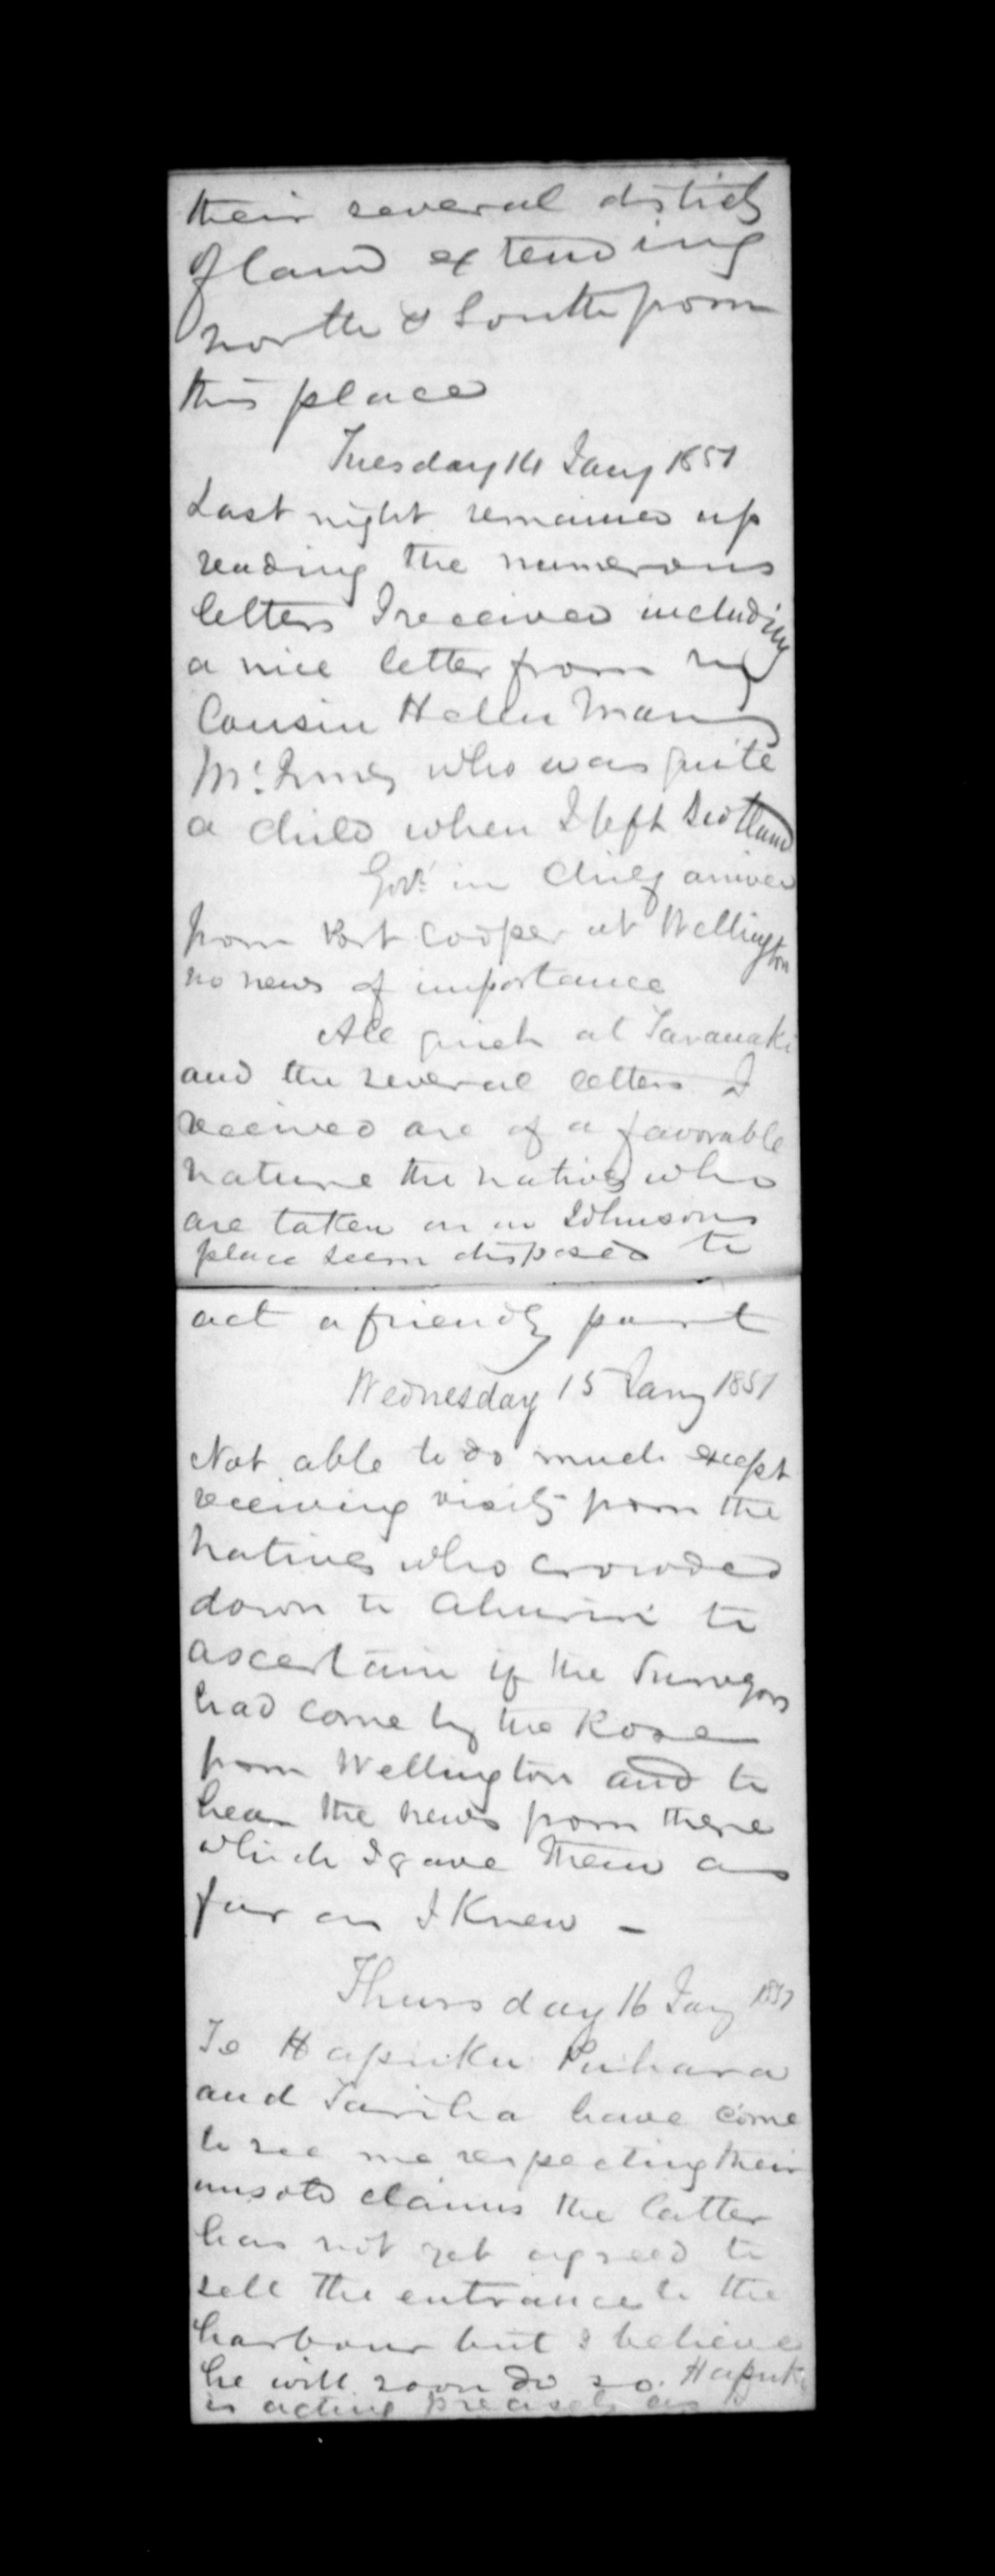 their several districts
of land extending
north & South from
this place
Tuesday 14 Jany 1851
Last night remained up
reading the numerous
letters I received including
a nice letter from my
Cousin Helen Mary
McInnes who was quite
a child when I left Scotland
Govr. in Chief arrived
from Port Cooper at Wellington
no news of importance
All quiet at Taranaki
and the several letters I
received are of a favorable
nature the natives who
are taken on in Johnsons
place seem disposed to
act a friendly part
Wednesday 15 Jany 1851
Not able to do much except
receiving visits from the
Natives who crowded
down to Ahuriri to
ascertain if the Surveyors
had come by the Rose
from Wellington and to
hear the news from there
which I gave them as
far as I Knew -
Thursday 16 Jany 1851
Te Hapuku Puhara
and Tariha have come
to see me respecting their
unsold claims the latter
has not yet agreed to
sell the entrance to the
harbour but I believe
he will soon do so. Hapuku
is acting precisely as